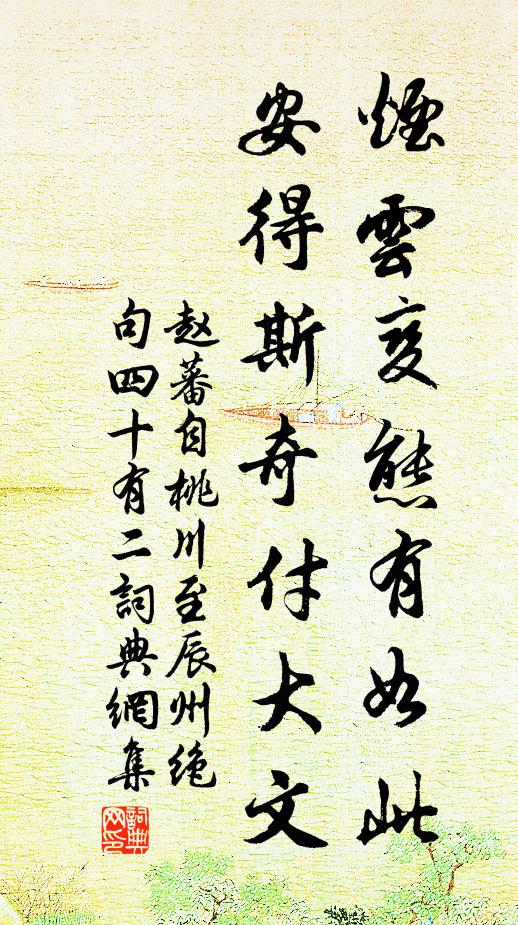 煙雲变態有如此
安得斯奇付大文
赵蕃自桃川至辰州绝
句四十有二詞典網集
詞典
网印